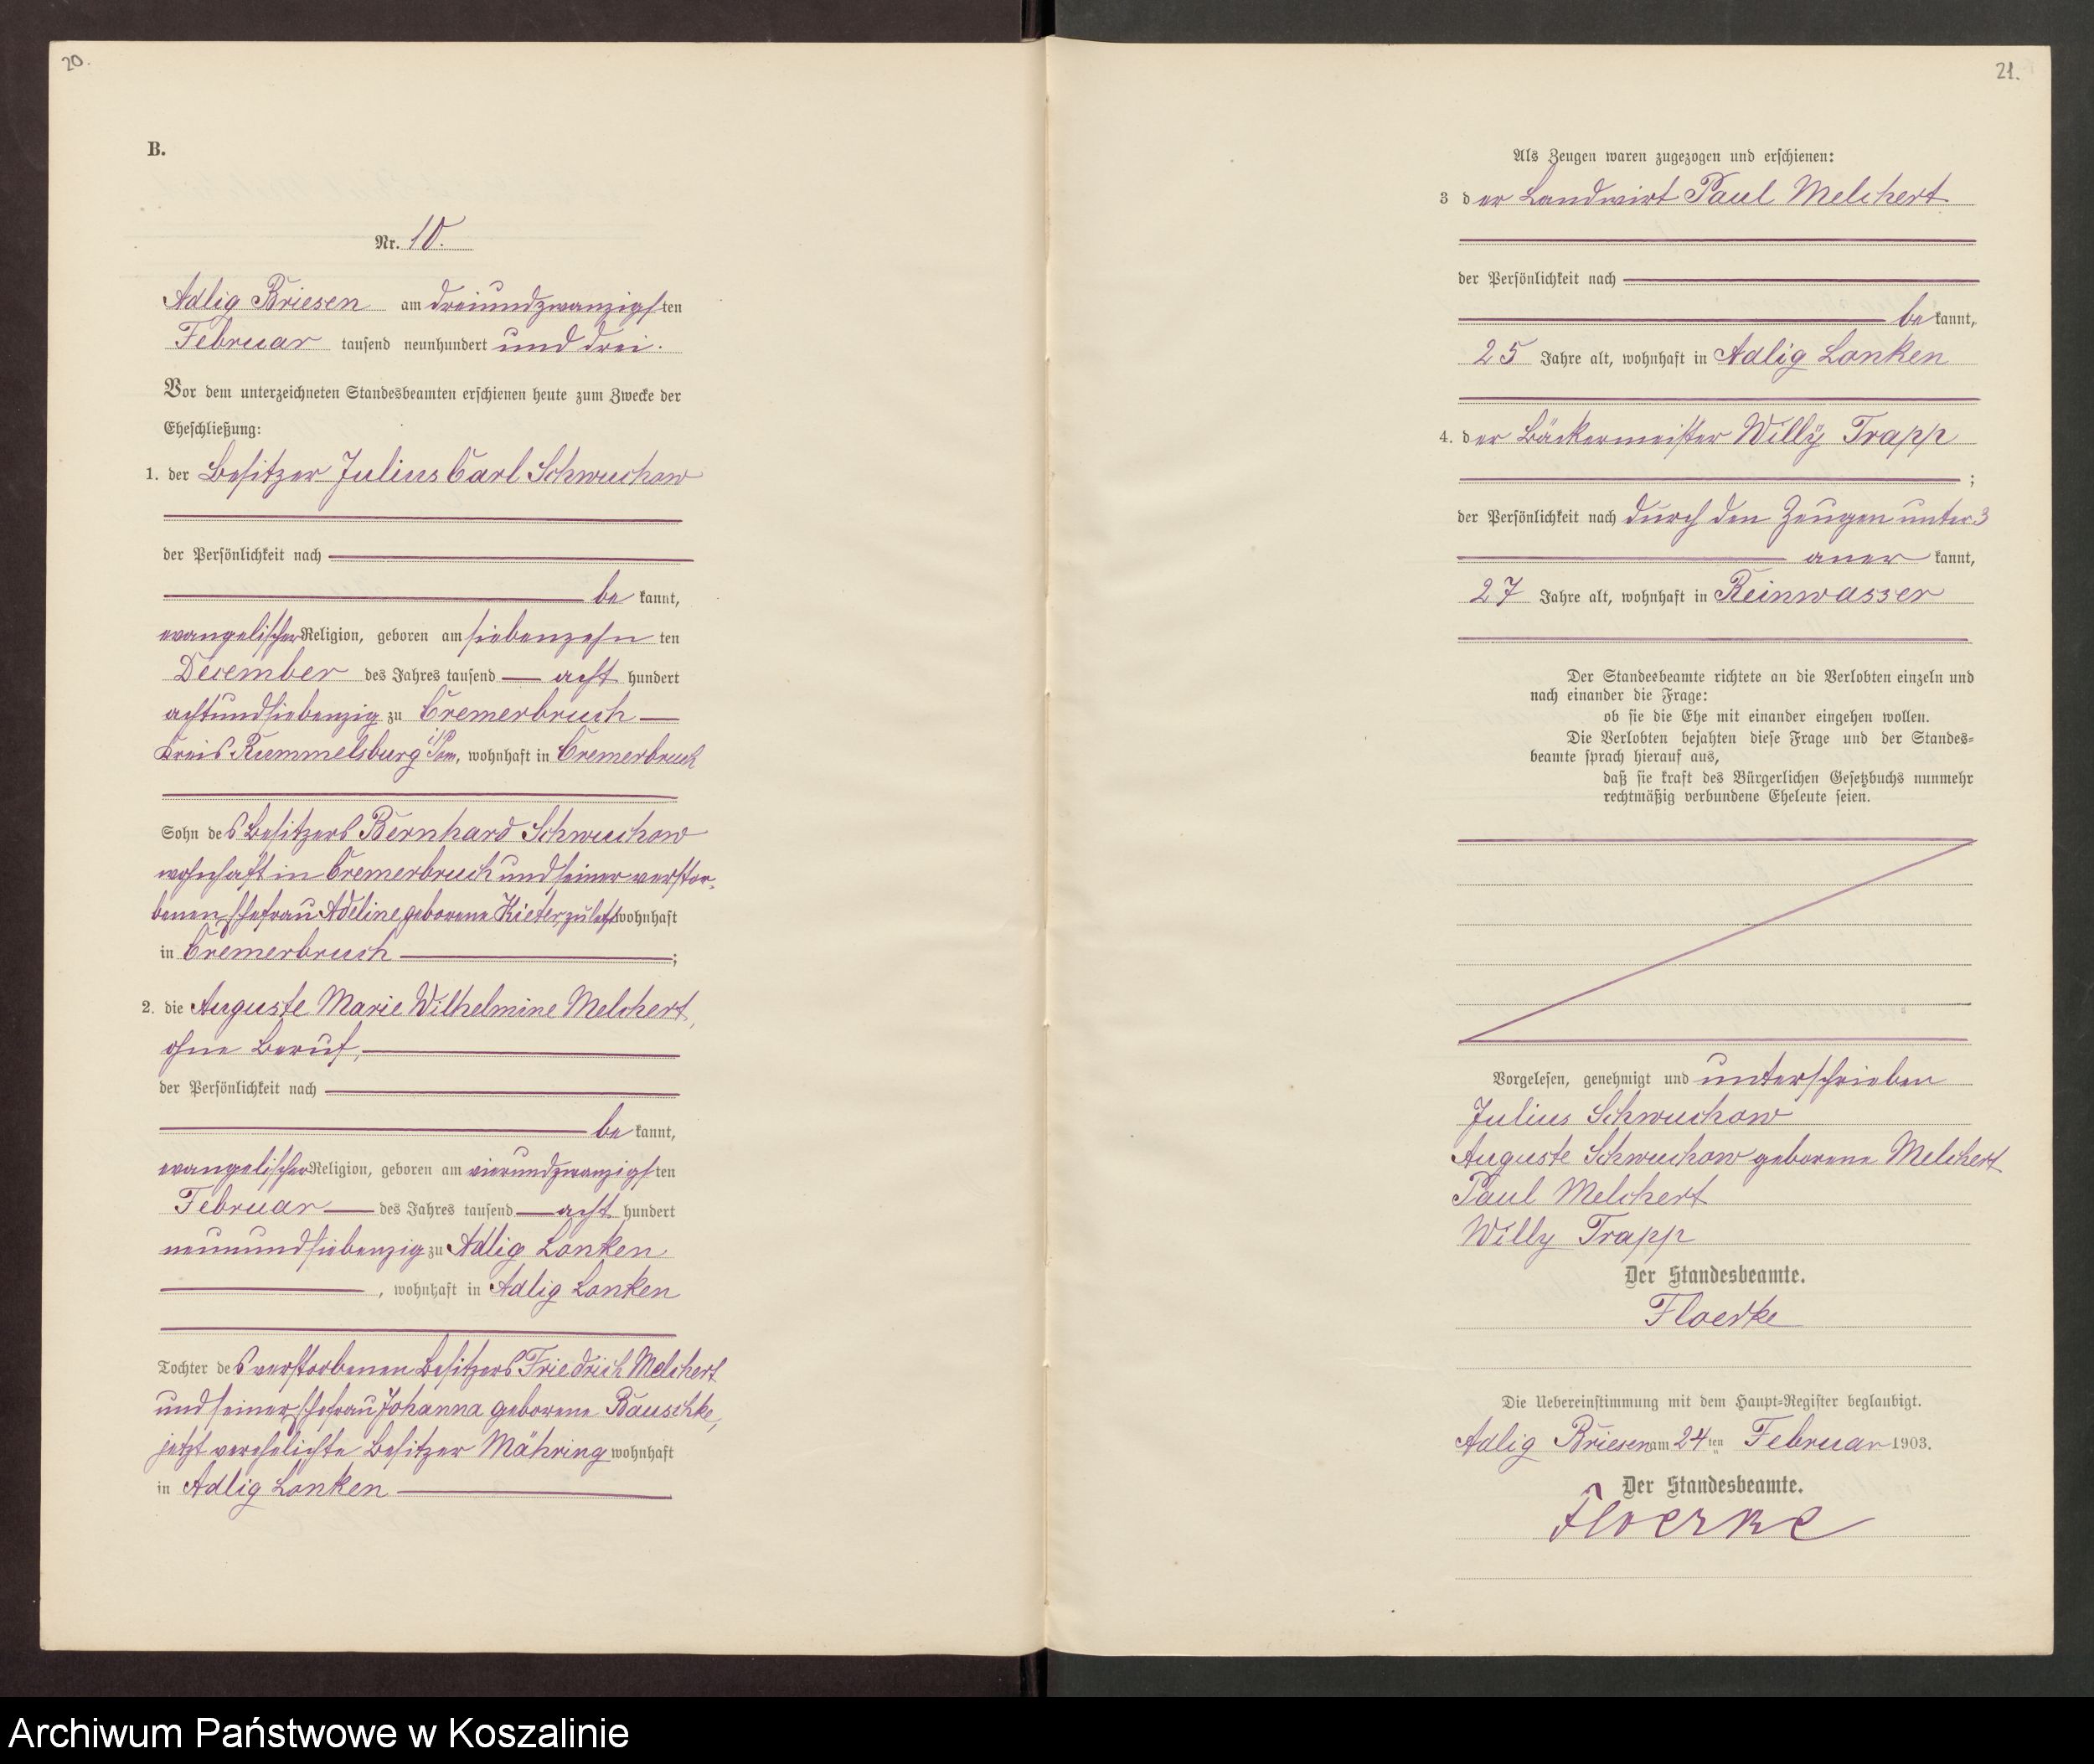 20.
B.
Nr. 10.
Adlig Briesen am dreiundzwanzigsten
Februar tausend neunhundert und drei.
Vor dem unterzeichneten Standesbeamten erschienen heute zum Zwecke der
Eheschließung:
1. der Besitzer Julius Carl Schwuchow
der Persönlichkeit nach
be kannt,
evangelischer Religion, geboren am siebenzehn ten
December des Jahres tausend acht hundert
achtundsiebenzig zu Cremerbruch
Kreis Rummelsburg i/Pom, wohnhaft in Cremerbruch
Sohn des Besitzers Bernhard Schwuchow
wohnhaft in Cremerbruch und seiner verstor-
benen Ehefrau Adeline geborene Kieter, zuletzt wohnhaft
in Cremerbruch ;
2. die Auguste Marie Wilhelmine Melchert,
ohne Beruf,
der Persönlichkeit nach
be kannt,
evangelischer Religion, geboren am vierundzwanzigsten
Februar des Jahres tausend acht hundert
neunundsiebenzig zu Adlig Lonken
, wohnhaft in Adlig Lonken
Tochter des verstorbenen Besitzers Friedrich Melchert
und seiner Ehefrau Johanna geborene Bauschke,
jetzt verehelichte Besitzer Mähring wohnhaft
in Adlig Lonken
21.
Als Zeugen waren zugezogen und erschienen:
3 der Landwirt Paul Melchert
der Persönlichkeit nach
be kannt,
25 Jahre alt, wohnhaft in Adlig Lonken
4. der Bäckermeister Willy Trapp
;
der Persönlichkeit nach durch den Zeugen unter 3
aner kannt,
27 Jahre alt, wohnhaft in Reinwasser
Der Standesbeamte richtete an die Verlobten einzeln und
nach einander die Frage:
ob sie die Ehe mit einander eingehen wollen.
Die Verlobten bejahten diese Frage und der Standes-
beamte sprach hierauf aus,
daß sie kraft des Bürgerlichen Gesetzbuchs nunmehr
rechtmäßig verbundene Eheleute seien.
Vorgelesen, genehmigt und unterschrieben
Julius Schwuchow
Auguste Schwuchow geborene Melchert
Paul Melchert
Willy Trapp
Der Standesbeamte.
Floerke
Die Uebereinstimmung mit dem Haupt-Register beglaubigt.
Adlig Briesen am 24 ten Februar 1903.
Der Standesbeamte.
Floerke
Archiwum Państwowe w Koszalinie